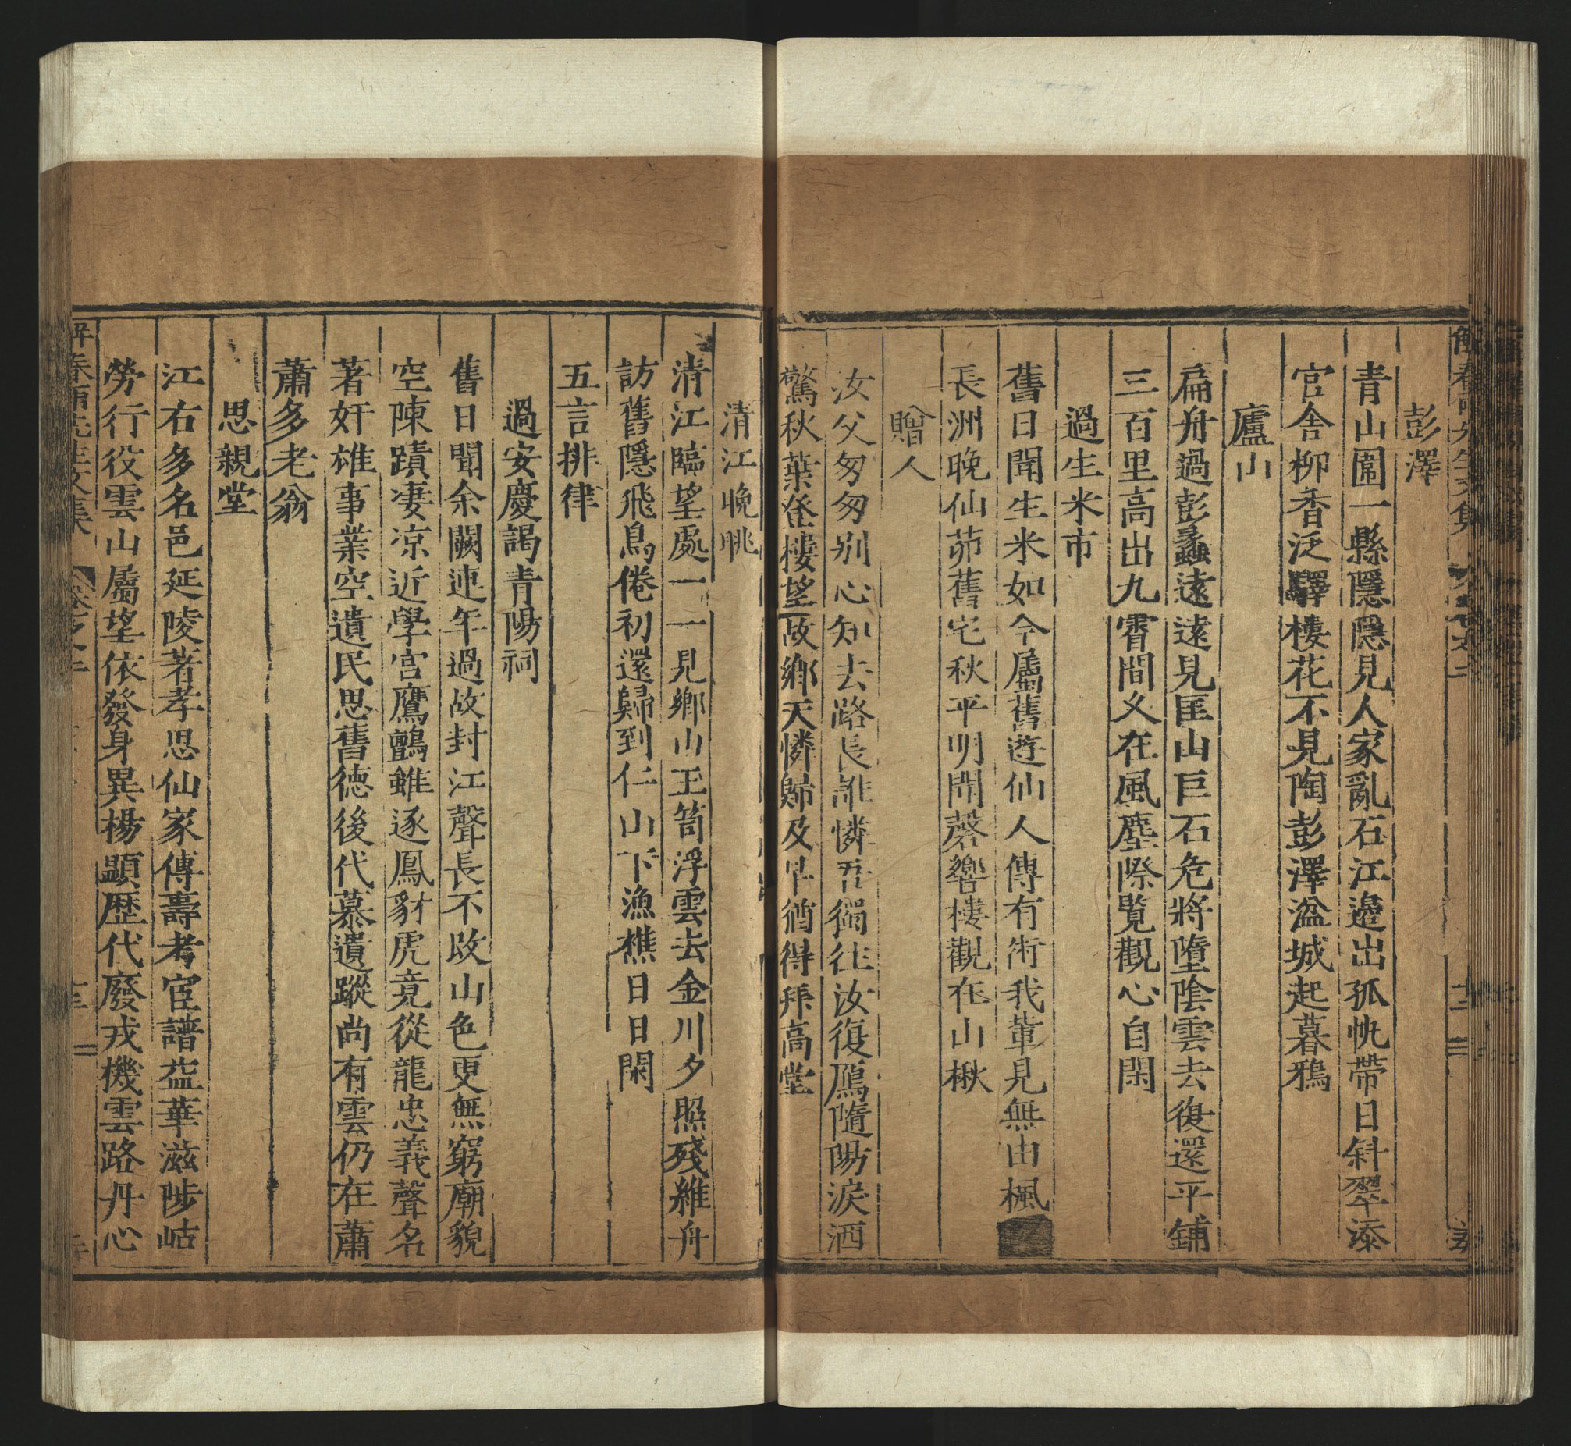 彭澤
青山圍一縣隱隱見人家亂石江邊出孤帆帶日斜翠添
官舍柳香泛驛樓花不見陶彭澤湓城起暮鴉
廬山
扁舟過彭蠡遠遠見匡山巨石危將墮陰雲去復還平鋪
三百里高出九霄間又在風塵際覽觀心自閑
過生米市
舊日聞生米如今屬舊遊仙人傳有術我輩見無由楓
長洲晚仙茆舊宅秋平明聞磬響樓觀在山楸
贈人
汝父匆匆别心知去路長誰憐吾獨往汝復鴈隨陽淚洒
驚秋葉登樓望故鄉天憐歸及早猶得拜高堂
清江晚眺
清江臨望處一一見鄉山玉笥浮雲去金川夕照殘維舟
訪舊隱飛鳥倦初還歸到仁山下漁樵日日閑
五言排律
過安慶謁青陽祠
舊日聞余闕連年過故封江聲長不改山色更無窮廟貌
空陳蹟凄凉近學宫鷹鸇雖逐鳳豺虎竟從龍忠義聲名
著奸雄事業空遺民思舊德後代慕遺蹤尚有雲仍在蕭
蕭多老翁
思親堂
江右多名邑延陵著孝思仙家傳壽考宦譜益華滋陟岵
勞行役雲山屬望依發身異楊顯歷代廢戎機雲路丹心